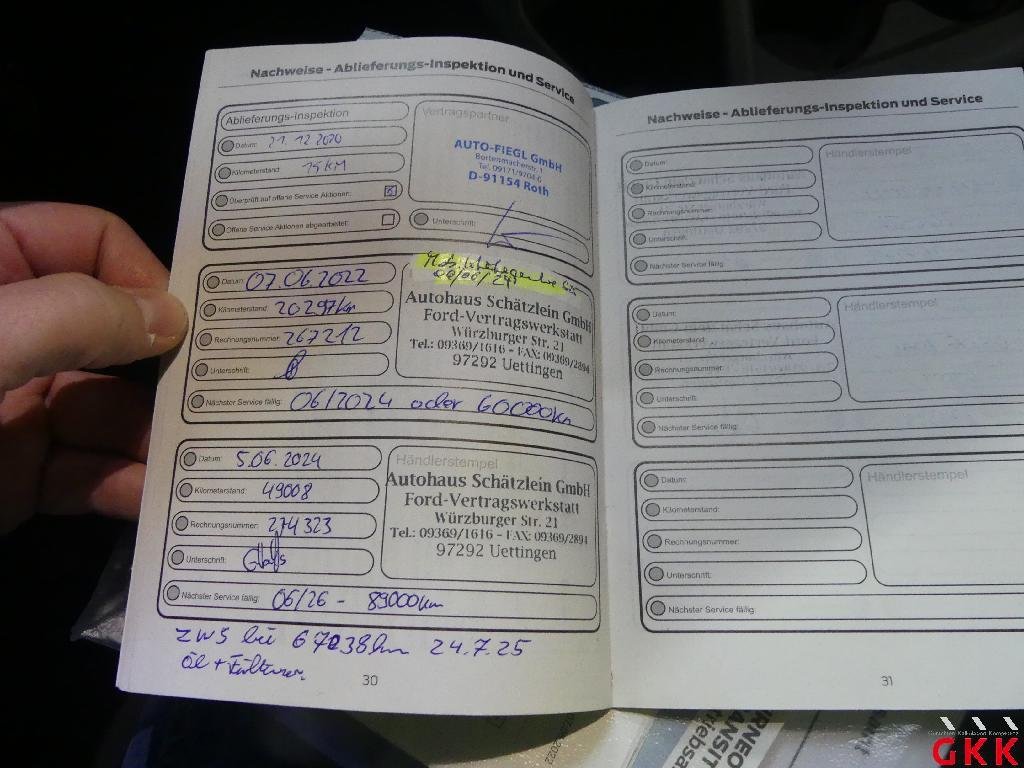 Nachweise - Ablieferungs-Inspektion und Service
Ablieferungs-Inspektion
Datum: 21.12.2020
Kilometerstand: 15 KM
Überprüft auf offene Service Aktionen:
Offene Service Aktionen abgearbeitet:
Vertragspartner
AUTO-FIEGL GmbH
Bortenmacherstr. 1
Tel. 09171/9704-0
D-91154 Roth
Unterschrift:
Datum: 07.06.2022
Kilometerstand: 20297km
Rechnungsnummer: 267212
Unterschrift:
Nächster Service fällig: 06/2024 oder 60000km
06/06/24
Autohaus Schätzlein GmbH
Ford-Vertragswerkstatt
Würzburger Str. 21
Tel.: 09369/1616 - FAX: 09369/2894
97292 Uettingen
Datum: 5.06.2024
Kilometerstand: 49008
Rechnungsnummer: 274323
Unterschrift:
Nächster Service fällig: 06/26 - 89000km
Händlerstempel
Autohaus Schätzlein GmbH
Ford-Vertragswerkstatt
Würzburger Str. 21
Tel.: 09369/1616 - FAX: 09369/2894
97292 Uettingen
ZWS bei 67038km 24.7.25
Öl +
30
Nachweise - Ablieferungs-Inspektion und Service
Datum:
Kilometerstand:
Rechnungsnummer:
Unterschrift:
Nächster Service fällig:
Händlerstempel
Datum:
Kilometerstand:
Rechnungsnummer:
Unterschrift:
Nächster Service fällig:
Händlerstempel
Datum:
Kilometerstand:
Rechnungsnummer:
Unterschrift:
Nächster Service fällig:
Händlerstempel
31
GKK